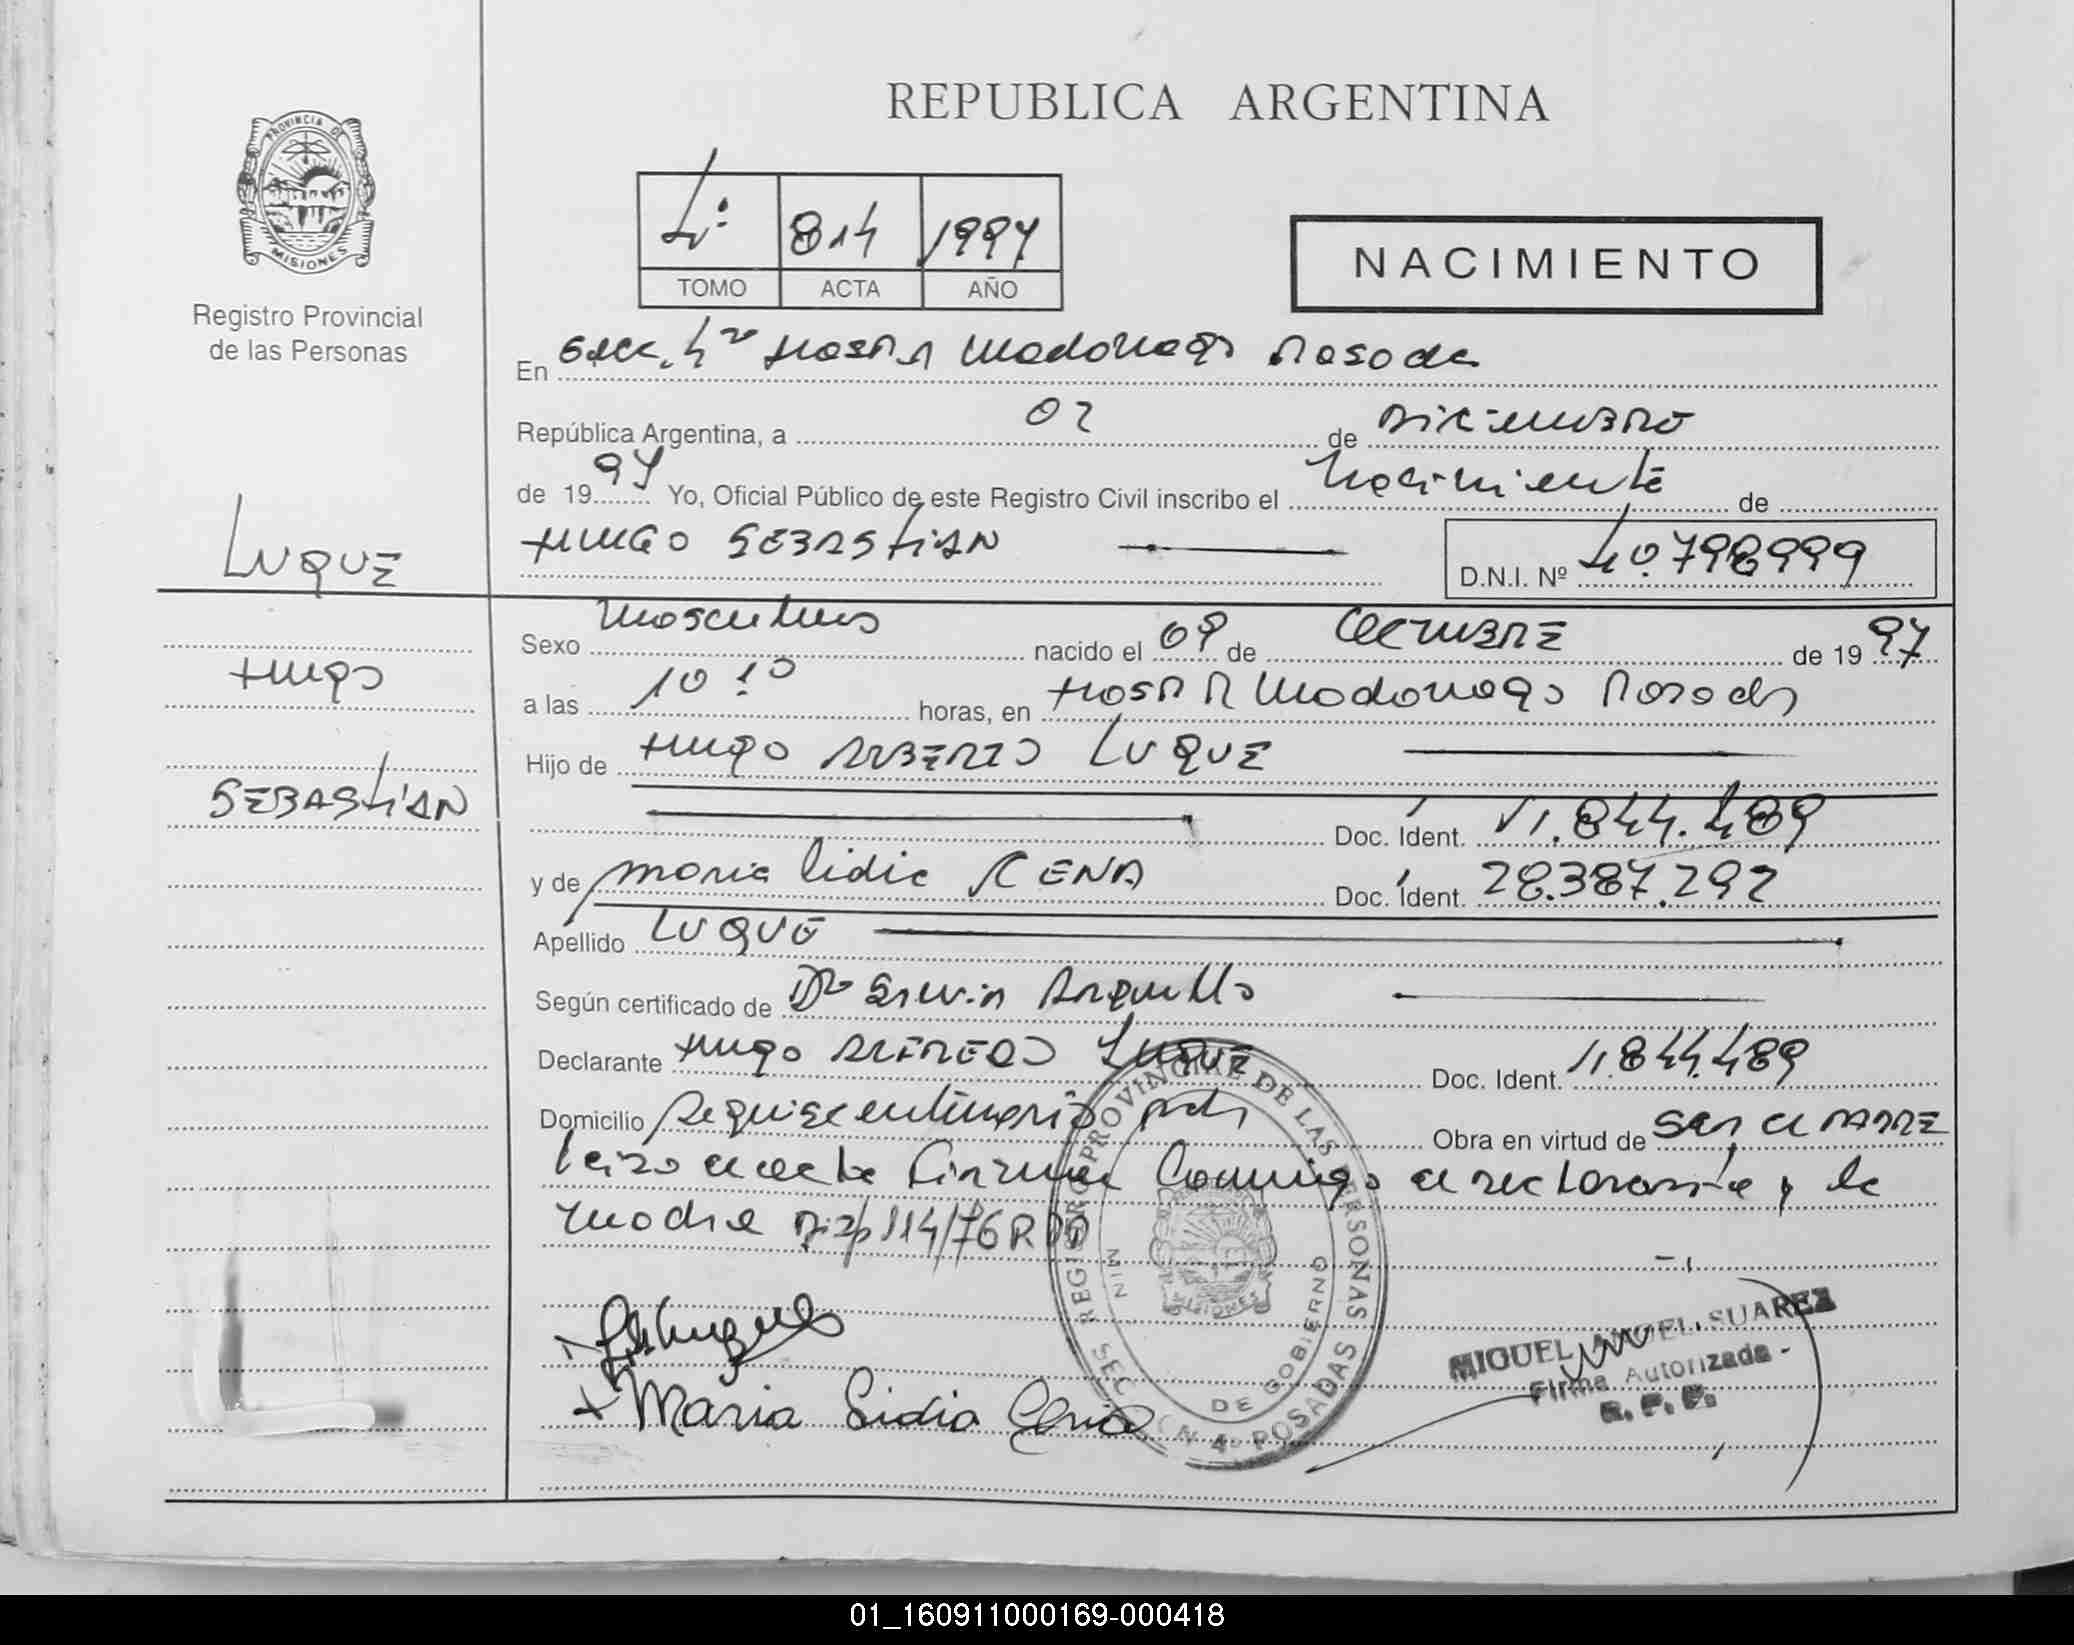 REPUBLICA ARGENTINA
PROVINCIA DE
MISIONES
Registro Provincial
de las Personas
814 1997
TOMO ACTA AÑO
NACIMIENTO
En Secc. 4ta Hosp. R Madariaga Posadas
República Argentina, a 02 de Diciembre
de 1997 Yo, Oficial Público de este Registro Civil inscribo el Nacimiento de
HUGO SEBASTIAN
D.N.I. Nº 40.798999
LUQUE
Hugo
SEBASTIAN
Sexo Masculino nacido el 09 de OCTUBRE de 1997
a las 10 10 horas, en Hosp R Madariaga Posadas
Hijo de Hugo LUQUE
Doc. Ident. 11.844.489
y de Maria Lidia CENA Doc. Ident. 28.387.292
Apellido LUQUE
Según certificado de Dr
Declarante Hugo LUQUE Doc. Ident. 11.844.489
Domicilio Sesquicentenario pds Obra en virtud de ser el PADRE
Leída el acta Firman Conmigo el declarante y la
Madre Disp 114/76 RPP
REGISTRO PROVINCIAL DE LAS PERSONAS
MIN DE GOBIERNO
MISIONES
SECCION 4º POSADAS
Maria Lidia Cena
MIGUEL ANGEL SUAREZ
Firma Autorizada -
R. P. P.
01_160911000169-000418